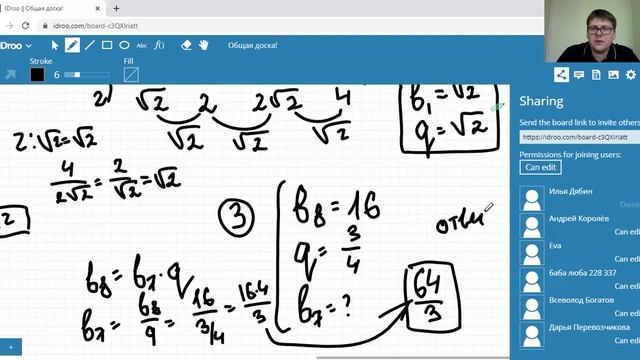 IDroo || Общая доска!
idroo.com/board-c3QXIriatt
IDroo
Общая доска!
Stroke
6
Fill
2) √2 2 2√2 4
√2 √2 √2
2:√2=√2
4/2√2 = 2/√2 = √2
b₁=√2
q=√2
3
b₈=16
q=3/4
b₇=?
b₈=b₇·q
b₇=b₈/q=16/3/4=16·4/3
64/3
Sharing
Send the board link to invite others
https://idroo.com/board-c3QXIriatt
Permissions for joining users:
Can edit
Илья Дябин
Owne
Андрей Королёв
Can edi
Eva
Can edi
баба люба 228 337
Can edi
Всеволод Богатов
Can edi
Дарья Перевозчикова
Can edi